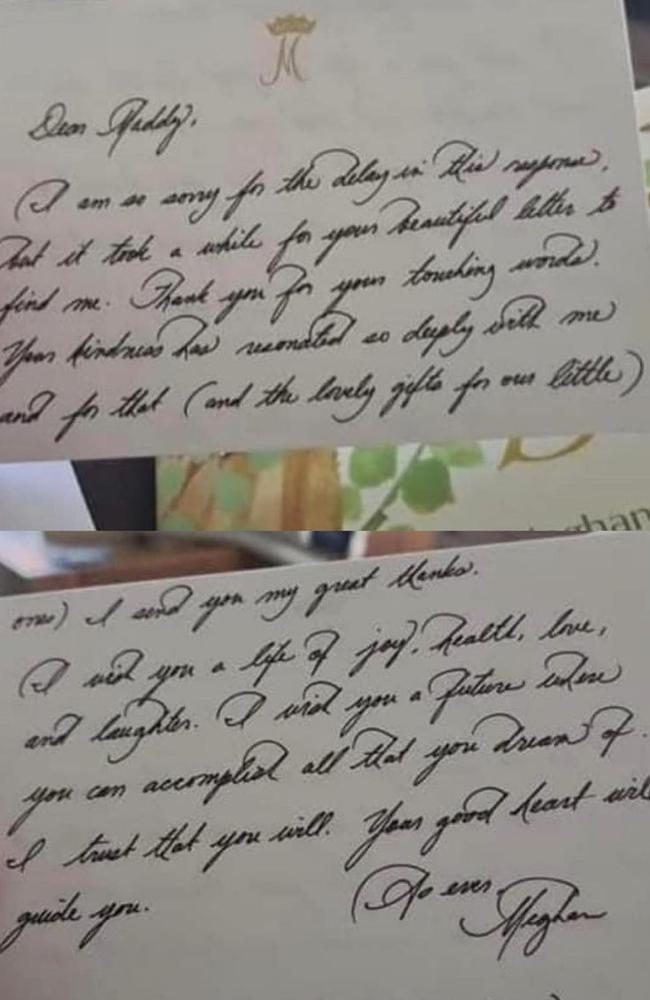 M
Dear Maddy,
I am so sorry for the delay in this response,
but it took a while for your beautiful letter to
find me. Thank you for your touching words.
Your kindness has resonated so deeply with me
and for that (and the lovely gifts for our little)
ghan
ones) I send you my great thanks.
I wish you a life of joy, health, love,
and laughter. I wish you a future where
you can accomplish all that you dream of.
I trust that you will. Your good heart will
guide you.
As ever,
Meghan